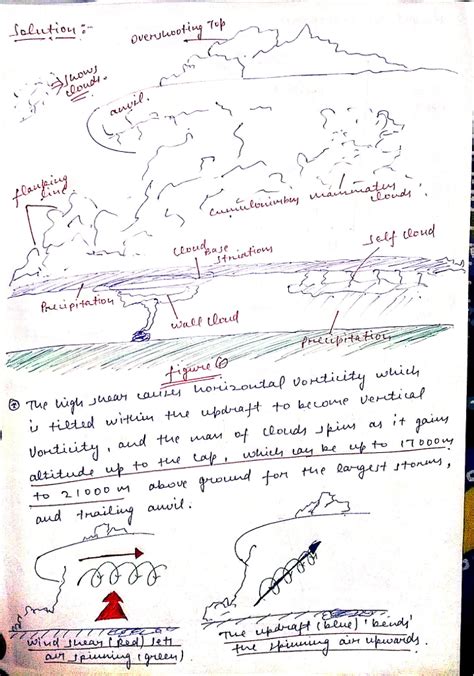 Solution :-
Overshooting Top
snows
clouds.
anvil.
flanking
line
Cumulonimbus mammatus
clouds
Cloud
Base
striations
Self cloud
Precipitation
Wall cloud
Precipitation
figure
The high shear causes horizontal vorticity which
is tilted within the updraft to become vertical
vorticity, and the mass of clouds spins as it gains
altitude up to the cap, which can be up to 17000m
to 21000m above ground for the largest storms,
and trailing anvil.
Wind shear (Red) sets
air spinning (green)
The updraft (blue) 'bends'
the spinning air upwards.